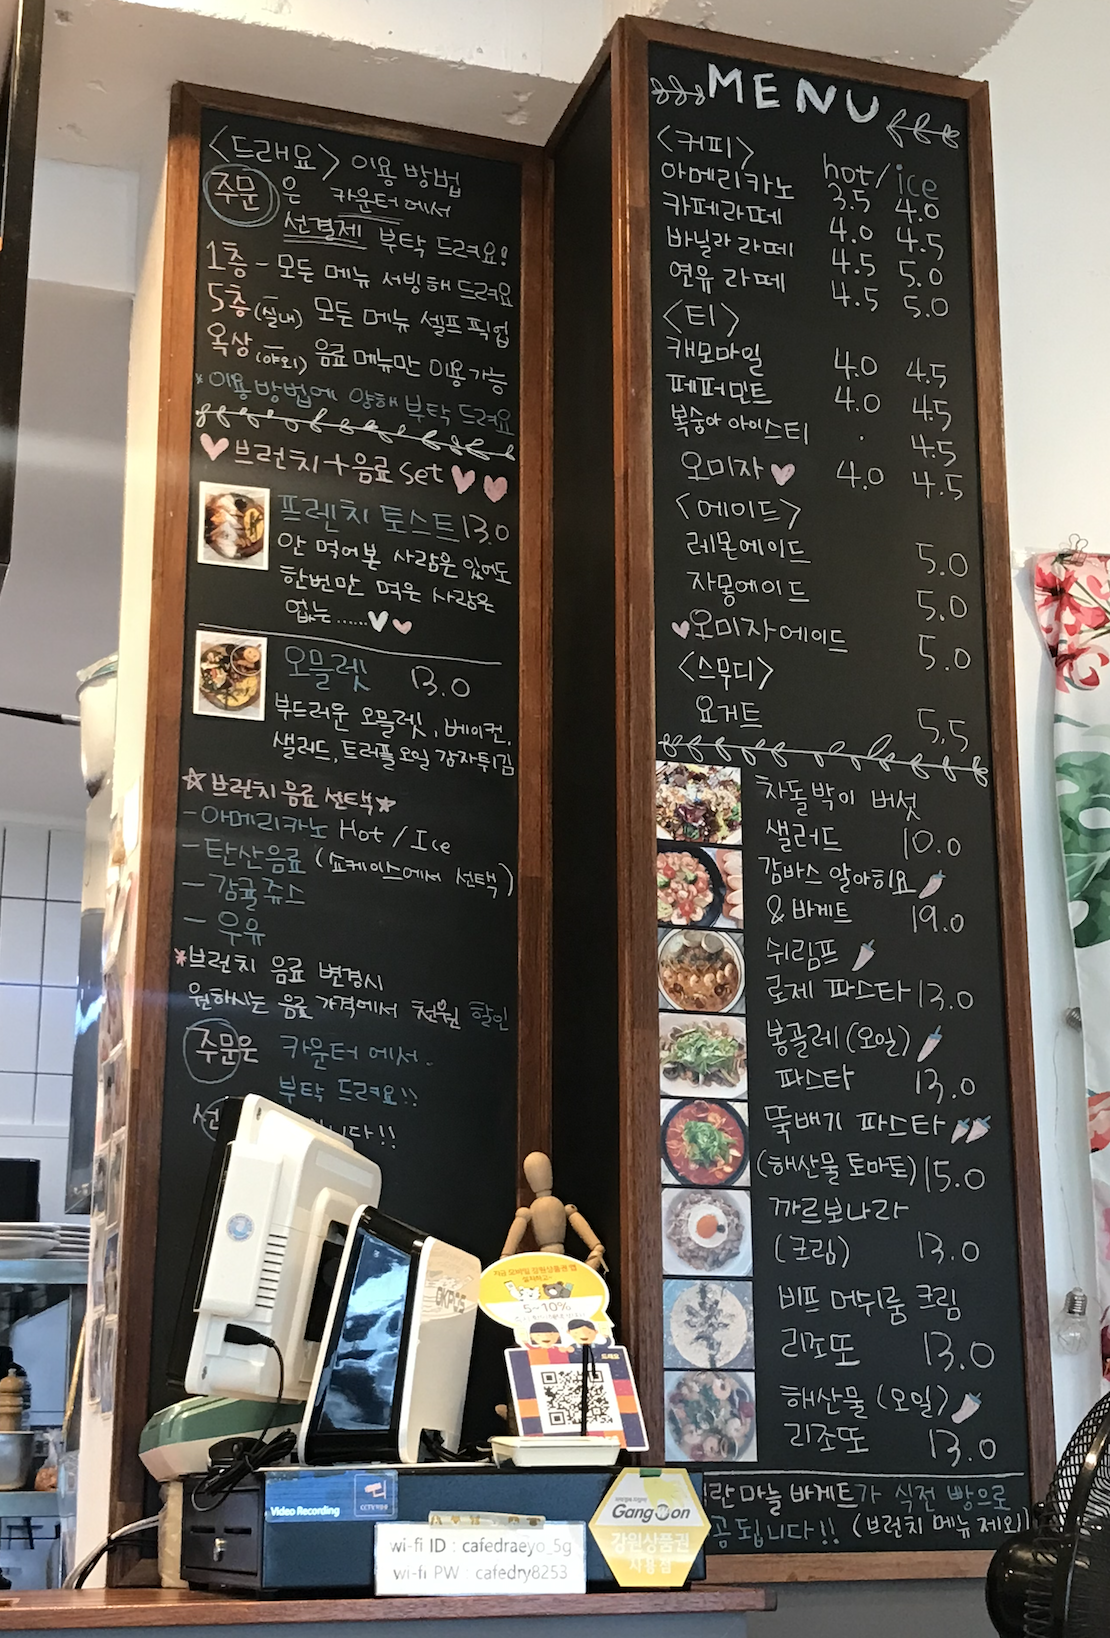 <드래요> 이용 방법
주문은 카운터에서
선결제 부탁 드려요!
1층 - 모든 메뉴 서빙해 드려요
5층(실내) 모든 메뉴 셀프 픽업
옥상(야외) 음료 메뉴만 이용가능
*이용방법에 양해 부탁 드려요
♥브런치+음료 set♥♥
프렌치 토스트 13.0
안 먹어본 사람은 있어도
한번만 먹은 사람은
없는......♥♥
오믈렛 13.0
부드러운 오믈렛, 베이컨,
샐러드, 트러플오일 감자튀김
☆브런치 음료 선택★
-아메리카노 Hot / Ice
-탄산음료 (쇼케이스에서 선택)
-감귤쥬스
- 우유
*브런치 음료 변경시
원하시는 음료 가격에서 천원 할인
주문은 카운터에서.
부탁 드려요!!
선
니다!!
MENU
<커피> hot/ice
아메리카노 3.5 4.0
카페라떼 4.0 4.5
바닐라 라떼 4.5 5.0
연유 라떼 4.5 5.0
<티>
캐모마일 4.0 4.5
페퍼민트 4.0 4.5
복숭아 아이스티 · 4.5
오미자♥ 4.0 4.5
<에이드>
레몬에이드 5.0
자몽에이드 5.0
♥오미자에이드 5.0
<스무디>
요거트 5.5
차돌박이 버섯
샐러드 10.0
감바스 알아히요
& 바게트 19.0
쉬림프
로제 파스타 13.0
봉골레(오일)
파스타 13.0
뚝배기 파스타
(해산물 토마토) 15.0
까르보나라
(크림) 13.0
비프 머쉬룸 크림
리조또 13.0
해산물 (오일)
리조또 13.0
란 마늘 바게트가 식전 빵으로
공됩니다!! (브런치 메뉴 제외)
OKPOS
5~10%
Video Recording
CCTV
wi-fi ID : cafedraeyo_5g
wi-fi PW : cafedry8253
Gangwon
강원상품권
사용점